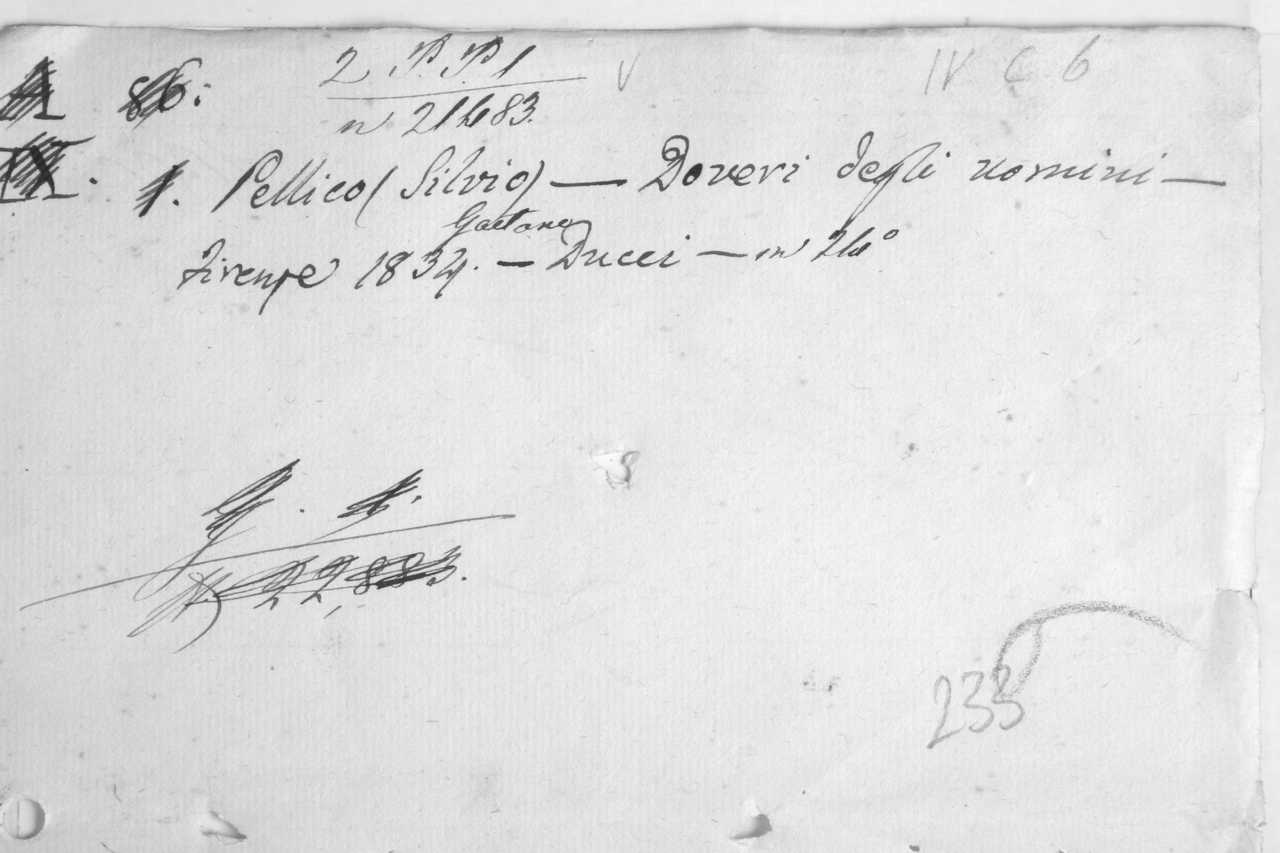 2 P. P. 1 IV C 6
86:
n 21483.
1. Pellico (Silvio) — Doveri degli uomini —
Gaetano
Firenze 1834. — Ducci — in 24°
22,883.
233